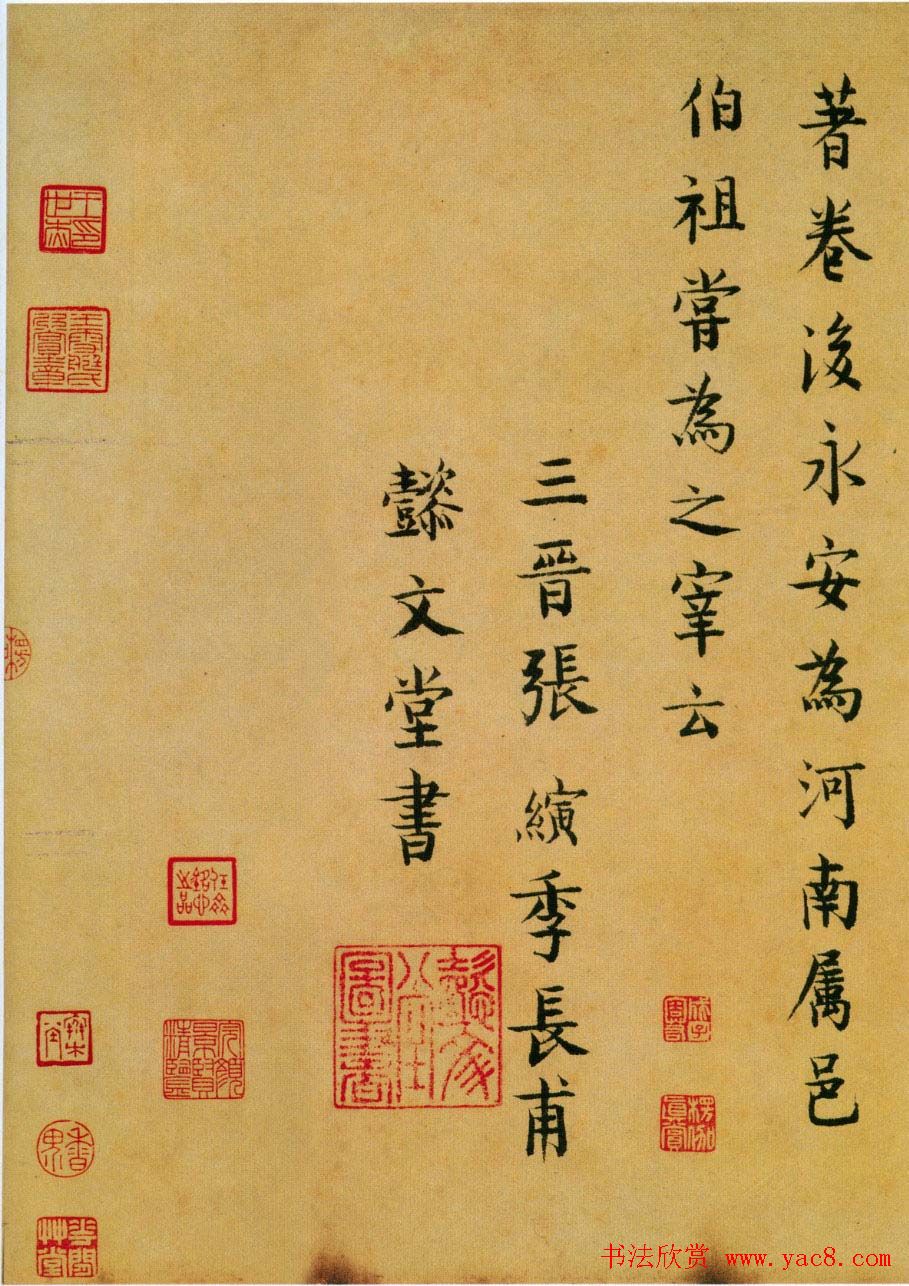 著卷後永安為河南属邑
伯祖嘗為之宰云
三晋張縯季長甫
懿文堂書
书法欣赏 www.yac8.com